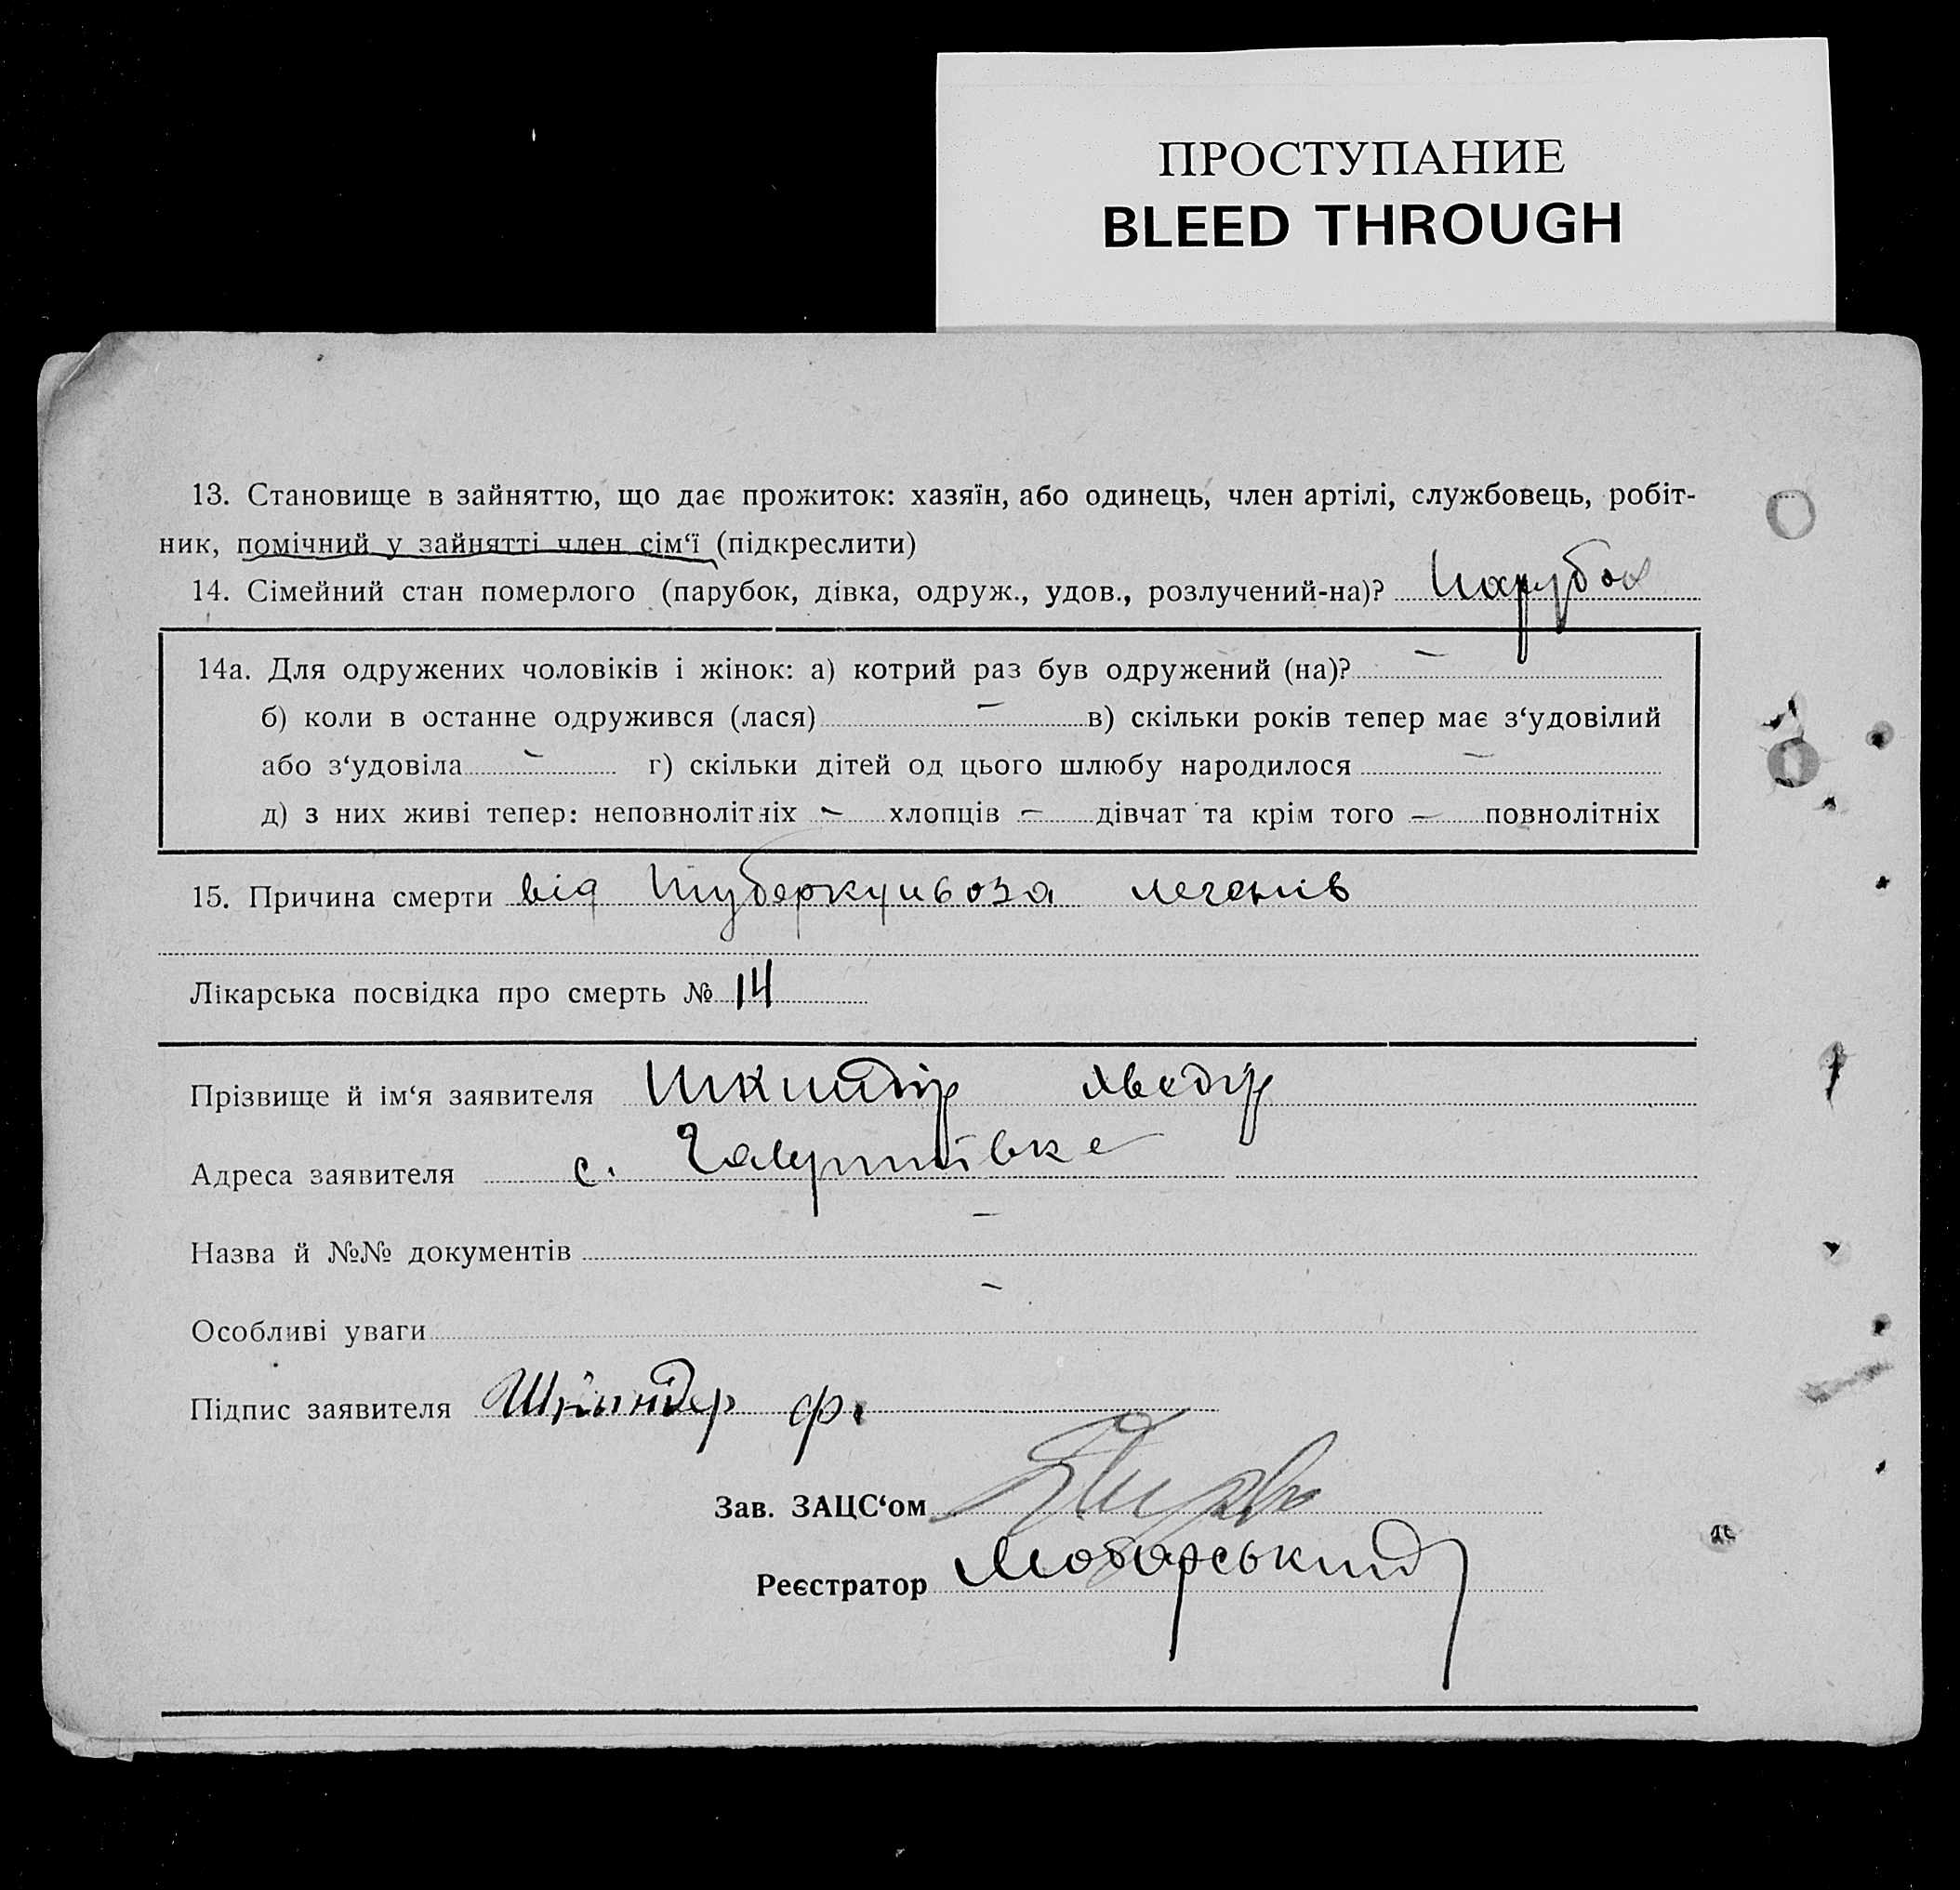 ПРОСТУПАНИЕ
BLEED THROUGH
13. Становище в зайняттю, що дає прожиток: хазяїн, або одинець, член артілі, службовець, робіт-
ник, помічний у зайнятті член сім‘ї (підкреслити)
14. Сімейний стан померлого (парубок, дівка, одруж., удов., розлучений-на)? Парубок
14а. Для одружених чоловіків і жінок: а) котрий раз був одружений (на)? —
б) коли в останне одружився (лася) — в) скільки років тепер має з‘удовілий
або з‘удовіла — г) скільки дітей од цього шлюбу народилося —
д) з них живі тепер: неповнолітніх — хлопців — дівчат та крім того — повнолітніх
15. Причина смерти від туберкульоза легенів
Лікарська посвідка про смерть № 14
Прізвище й ім‘я заявителя Хведір
Адреса заявителя с.
Назва й №№ документів —
Особливі уваги —
Підпис заявителя Шкиндер Ф.
Зав. ЗАЦС‘ом
Реєстратор